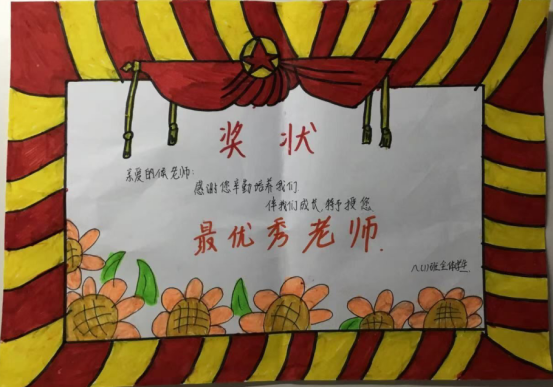 奖状
亲爱的老师:
感谢您辛勤培养我们
伴我们成长,特予授您
最优秀老师.
八(1)班全体学生